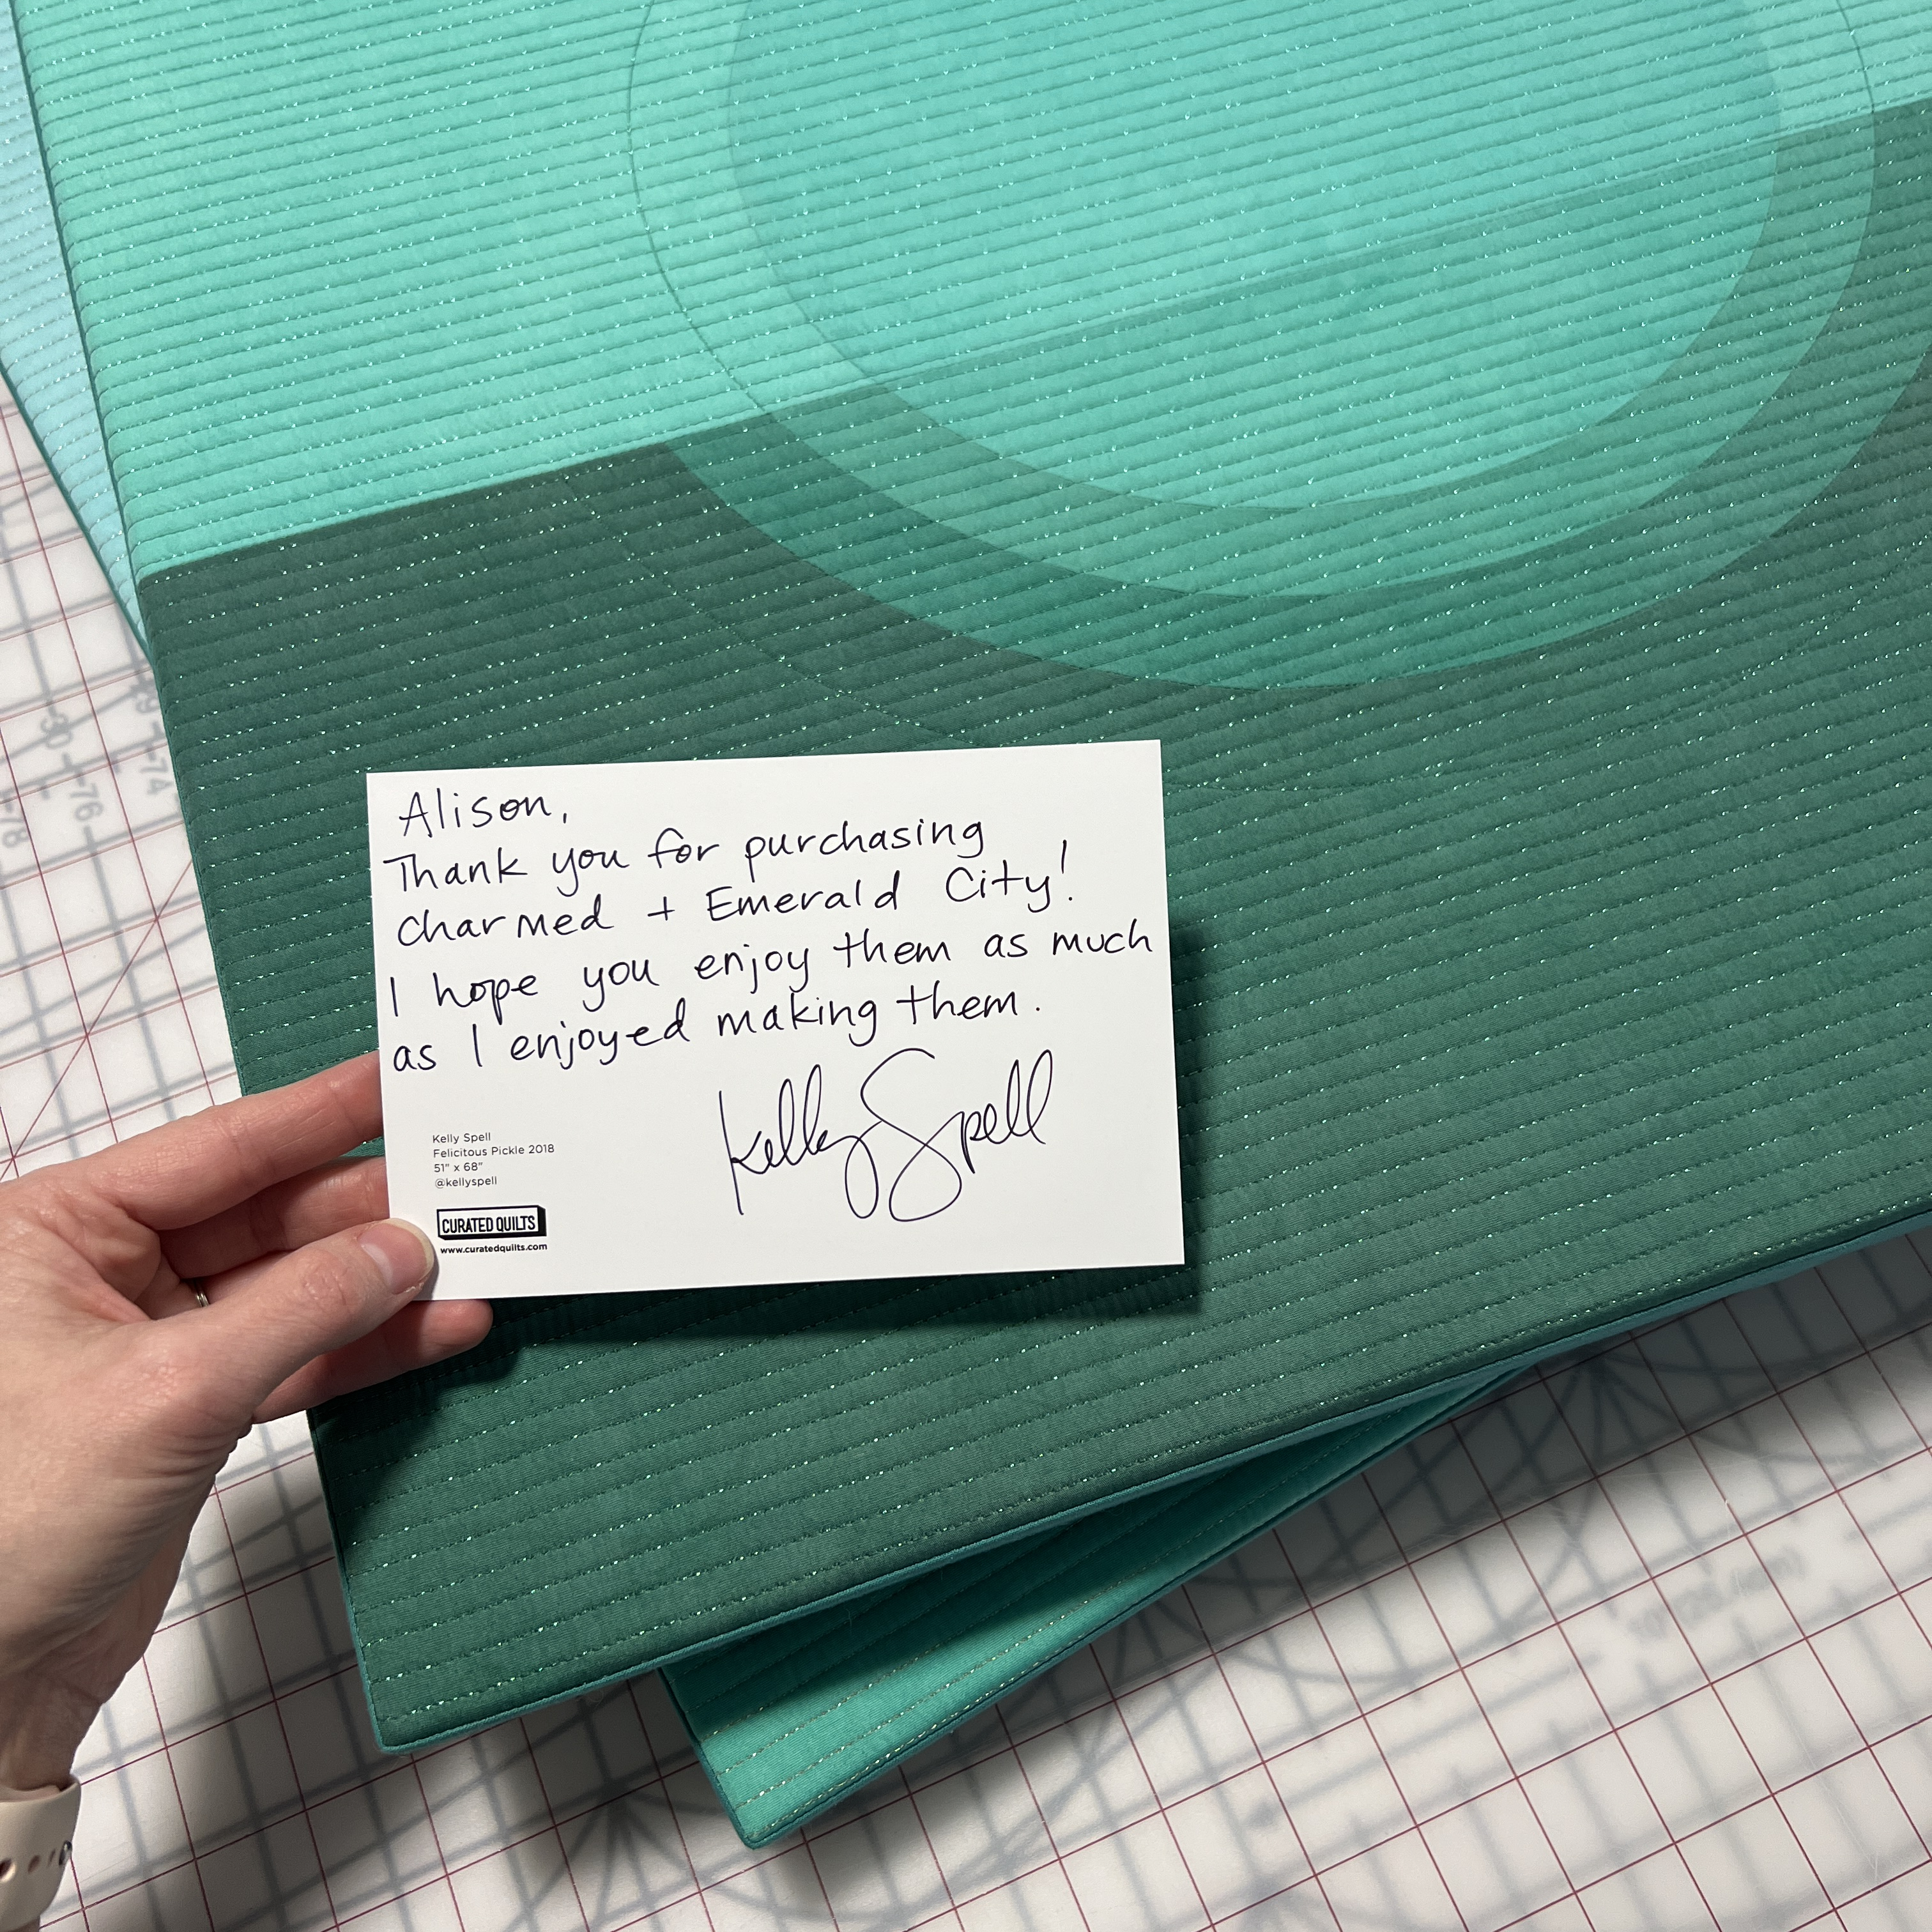 Alison,
Thank you for purchasing
Charmed + Emerald City!
I hope you enjoy them as much
as I enjoyed making them.
Kelly Spell
Kelly Spell
Felicitous Pickle 2018
51" x 68"
@kellyspell
CURATED QUILTS
www.curatedquilts.com
78
76
74